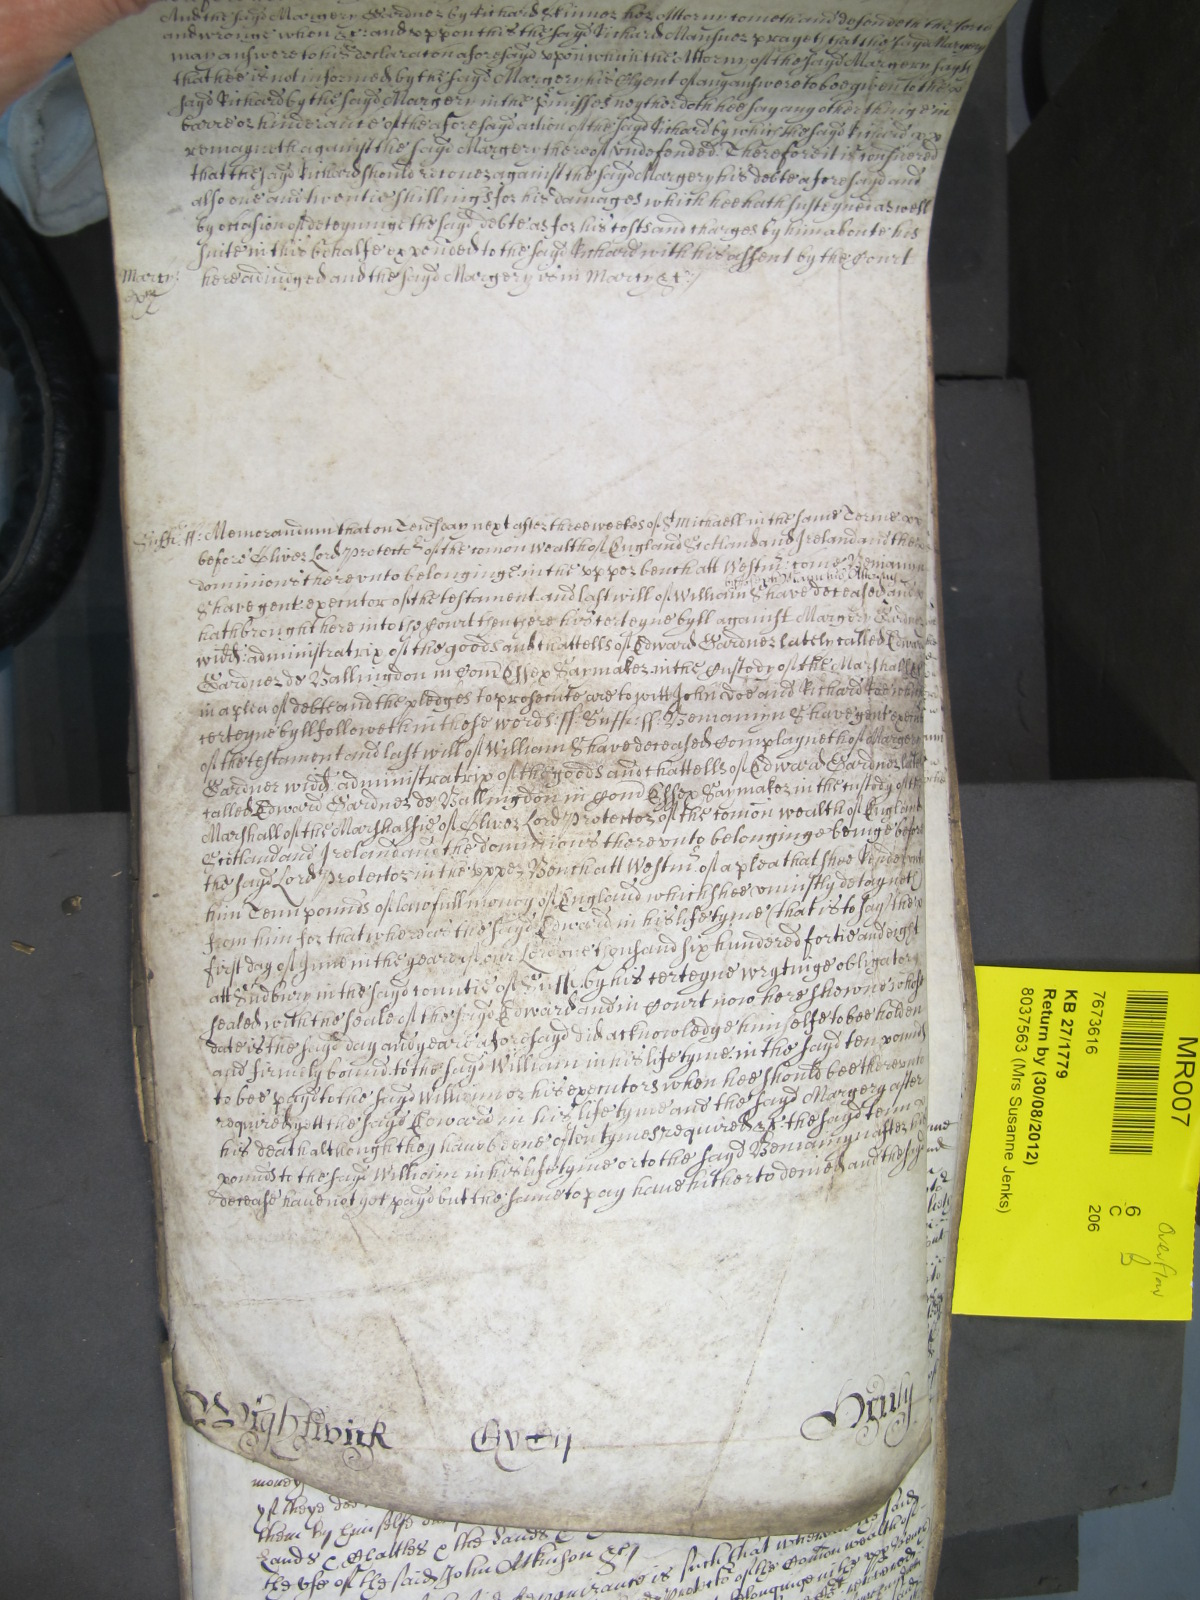 And the sayd Margery Gardner by Richard Skinner her Attorny cometh and defendeth the force
and wronge when &c: and uppon this the sayd Richard Mansner prayeth that the sayd Margery
may answere to his declaracon aforesayd uppon which the Attorny of the sayd Margery sayth
that hee is not informed by the sayd Margery his Clyent of any answere to bee given to the
sayd Richard by the sayd Margery in the premisses neyther doth hee say any other thinge in
barre or hinderance of the aforesayd action of the sayd Richard by which the sayd Richard
remayneth against the sayd Margery thereof undefended. Therefore it is considered
that the sayd Richard should recover against the sayd Margery his debte aforesayd and
also one and twentie shillings for his damages which hee hath susteyned as well
by occasion of deteyninge the sayd debte as for his costs and charges by him aboute his
suite in this behalfe expended to the sayd Richard with his assent by the Court
here adiudged and the sayd Margery is in Marcy &c:/
Marcy:
Suff: ss: Memorandum that on Tewsday next after three weekes of St Michaell in the same Terme
before Oliver Lord Protector of the comon wealth of England Scotland and Ireland and the
dominions thereunto belonginge in the upper bench att Westmr: came Beniamyn
Shave gent executor of the testament and last will of William Shave deceased and
hath brought here into the Court then there his certeyne byll against Margery Gardner
widd: administratrix of the goods and chattells of Edward Gardner lately called Edward
Gardner de Ballingdon in Com Essex Saymaker in the Custody of the Marshall &c
in a plea of debte and the pledges to prosecute are to witt John Doe and Richard Roe which
certeyne byll followeth in these words: ss: Suff: ss: Beniamyn Shave gent executor
of the testament and last will of William Shave deceased Complayneth of Margery
Gardner widd: administratrix of the goods and chattells of Edward Gardner late
called Edward Gardner de Ballingdon in Com Essex Saymaker in the custody of the
Marshall of the Marshalsie of Oliver Lord Protector of the comon wealth of England
Scotland and Ireland and the dominions thereunto belonginge beinge before
the sayd Lord Protector in the upper Bench att Westmr: of a plea that shee Render unto
him Tenn pounds of lawfull money of England which shee uniustly detayneth
from him for that whereas the sayd Edward in his life tyme (that is to say) the
first day of June in the yeare of our Lord one thousand six hundered fortie and eight
att Sudbury in the sayd countie of Suff: by his certeyne wrytinge obligatory
sealed with the seale of the sayd Edward and in Court now here shewne whose
date is the sayd day and yeare aforesayd did acknowledge himselfe to bee holden
and firmely bound to the sayd William in his life tyme in the sayd ten pounds
to bee payd to the sayd William or his executors when hee should bee thereunto
required yett the sayd Edward in his life tyme and the sayd Margery after
his death although they have beene often tymes required &c the sayd tenn
pounds to the sayd William in his life tyme or to the sayd Beniamyn after his
decease have not yet payd but the same to pay have hitherto denied and the sayd
Wightwick Eyen
money
them by himselfe
Lands
the use of the said John Atkinson &c/
is such that
MR007
7673616
KB 27/1779
Return by (30/08/2012)
8037563 (Mrs Susanne Jenks)
6
C
206
Overflow